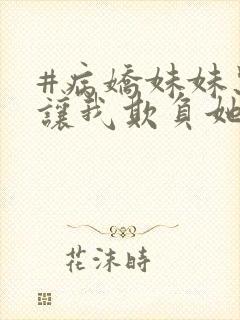 #病嬌妹妹
讓我欺負她
花沫時